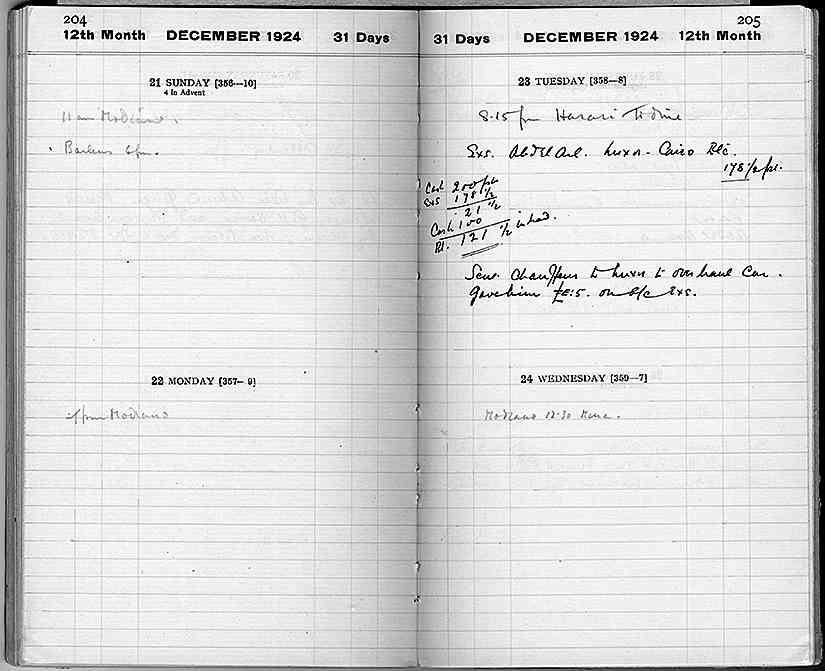 204
12th Month DECEMBER 1924 31 Days
21 SUNDAY [356—10]
4 in Advent
11 am Modiano.
Barbers 6 pm.
22 MONDAY [357—9]
pm Modiano
205
31 Days DECEMBER 1924 12th Month
23 TUESDAY [358—8]
8.15 pm Harari to dine
Exs. Abd el Aal. Luxor - Cairo Etc.
178½ pt.
Cash 200 pt
Exs 178½
21½
Cash 100
Bl. 121½ in hand.
Sent Chauffeur to Luxor to overhaul Car.
Gave him £E:5. on a/c Exs.
24 WEDNESDAY [359—7]
Modiano 12.30 Mena.